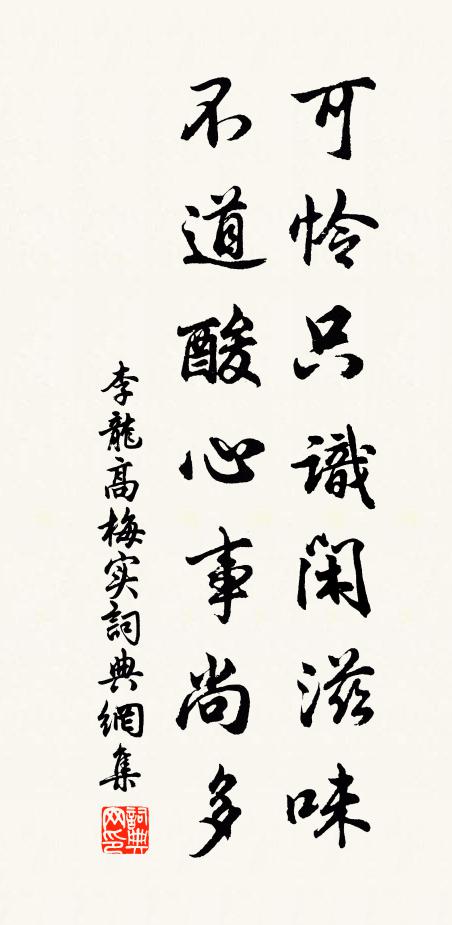 可怜只識閑滋味
不道酸心事尚多
李龍高梅实詞典網集
詞典網印